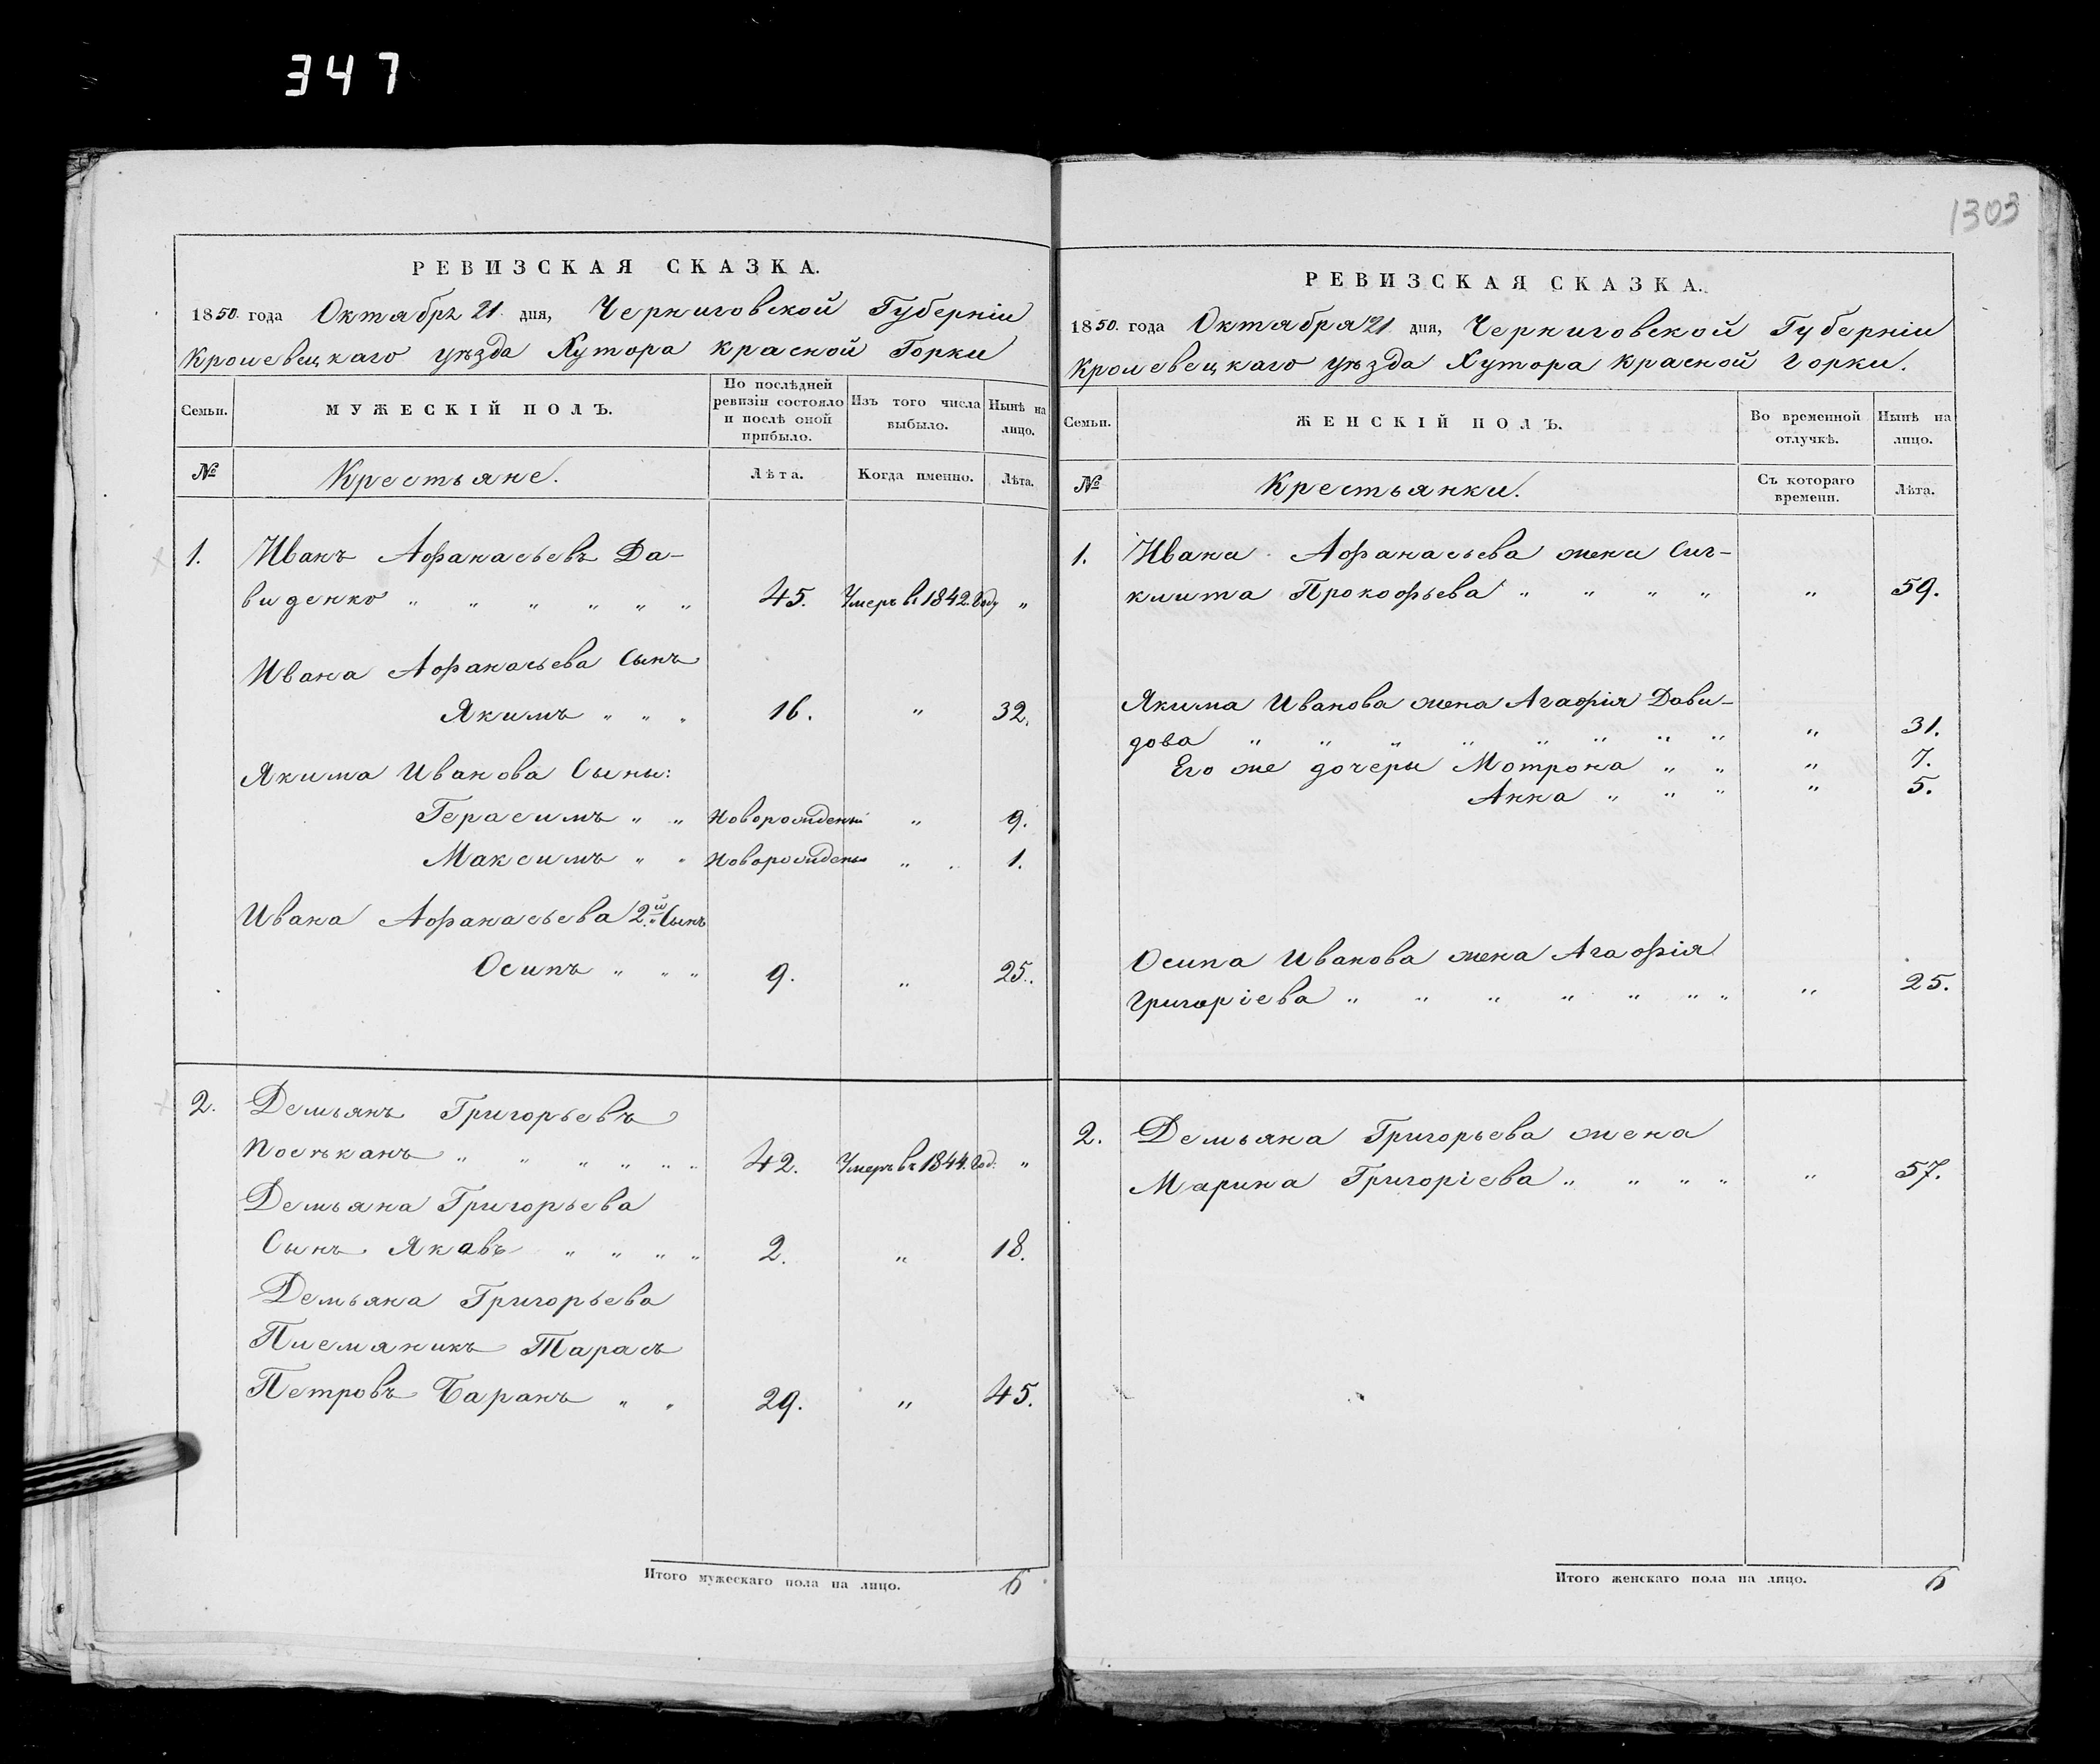 347
1303
РЕВИЗСКАЯ СКАЗКА.
1850. года Октября 21 дня, Черниговской Губерніи
Кролевецкаго уѣзда Хутора красной Горки
Семьи. МУЖЕСКІЙ ПОЛЪ. По послѣдней ревизіи состояло и послѣ оной прибыло. Изъ того числа выбыло. Нынѣ на лицо.
№ Крестьяне. Лѣта. Когда именно. Лѣта.
1. Иванъ Афанасьевъ Да-
виденко " " " " " " 45. Умеръ въ 1842. Году "
Ивана Афанасьева Сынъ
Якимъ " " " 16. " 32.
Якима Иванова Сыны:
Герасимъ " " Новорожденый " 9.
Максимъ " " Новорожденый " 1.
Ивана Афанасьева 2.й Сынъ
Осипъ " " " 9. " 25.
2. Демьянъ Григорьевъ
" " " " " " 42. Умеръ въ 1844. Год. "
Демьяна Григорьева
Сынъ Яковъ " " " " 2. " 18.
Демьяна Григорьева
Племяникъ Тарасъ
Петровъ Баранъ " " 29. " 45.
Итого мужескаго пола на лицо. 6
РЕВИЗСКАЯ СКАЗКА.
1850. года Октября 21 дня, Черниговской Губерніи
Кролевецкаго уѣзда Хутора красной Горки.
Семьи. ЖЕНСКІЙ ПОЛЪ. Во временной отлучкѣ. Нынѣ на лицо.
№ Крестьянки. Съ котораго времени. Лѣта.
1. Ивана Афанасьева жена
Прокофьева " " " " " 59.
Якима Иванова жена Агафія Дави-
дова " " " " " " " " " 31.
Его же дочери Мотрона " " " 7.
Анна " " " " 5.
Осипа Иванова жена Агафія
Григоріева " " " " " " " " 25.
2. Демьяна Григорьева жена
Марина Григоріева " " " " " 57.
Итого женскаго пола на лицо. 6